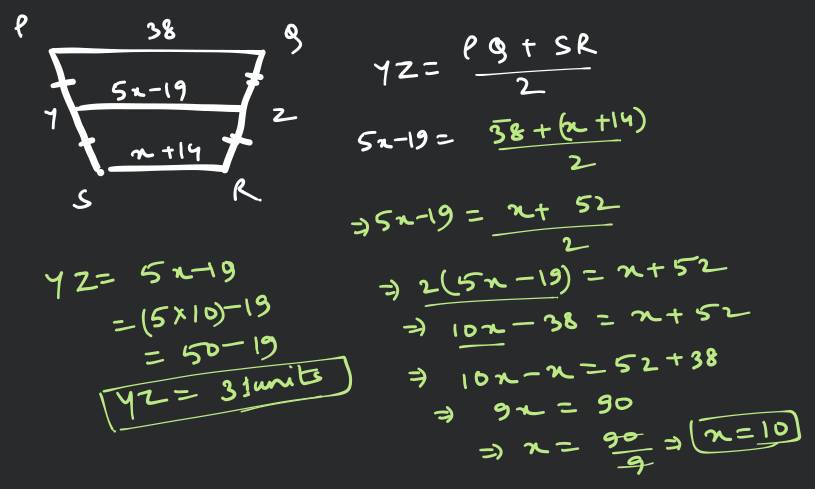 P 38 Q
5x-19
Y Z
x+14
S R
YZ = PQ + SR / 2
5x-19 = 38 + (x+14) / 2
⇒ 5x-19 = x + 52 / 2
⇒ 2(5x-19) = x+52
⇒ 10x - 38 = x + 52
⇒ 10x - x = 52 + 38
⇒ 9x = 90
⇒ x = 90/9 ⇒ x = 10
YZ = 5x-19
= (5×10)-19
= 50-19
YZ = 31units